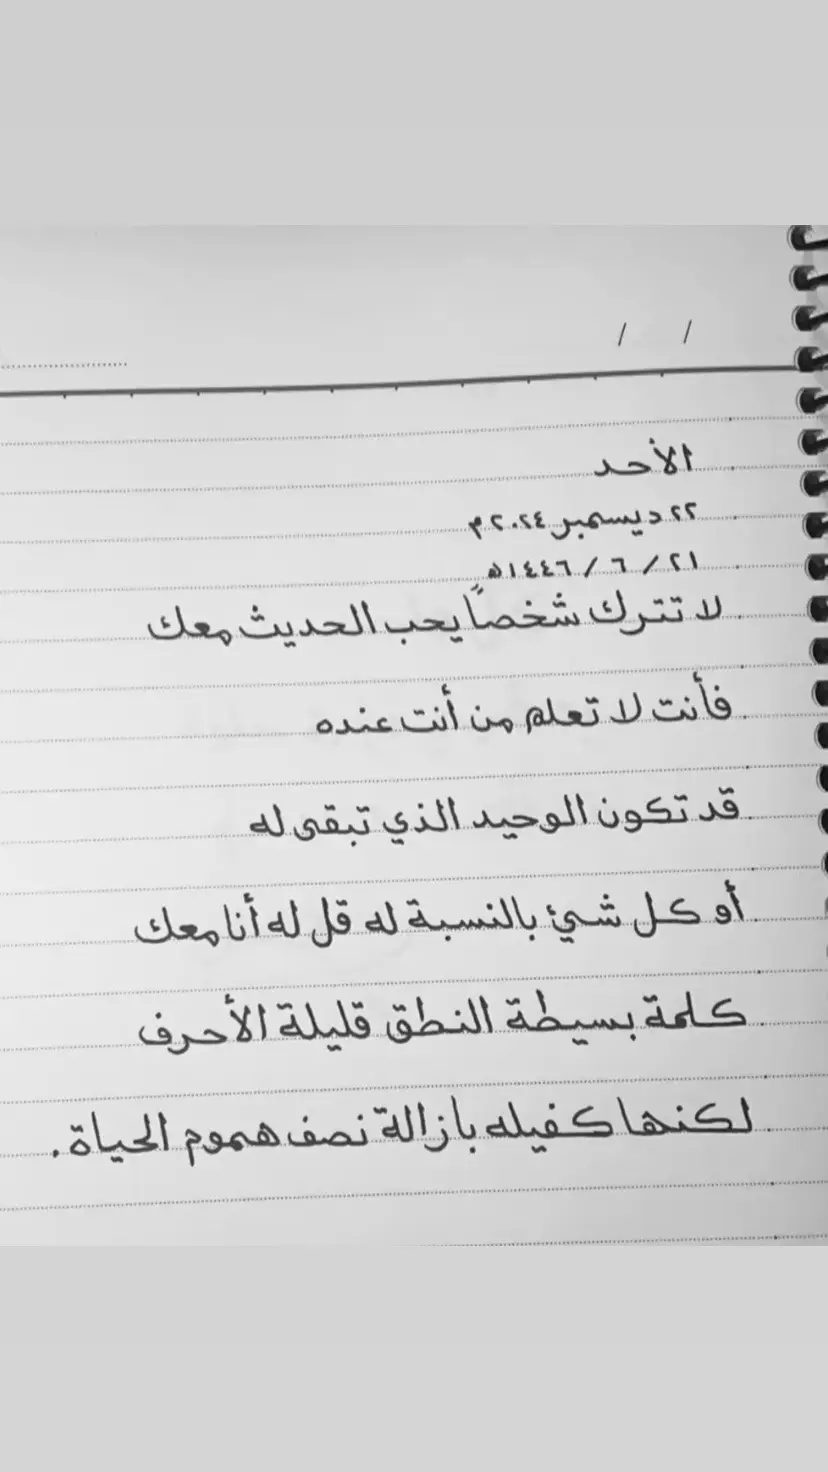 / /
الأحد
٢٢ ديسمبر ٢٠٢٤م
٢١ / ٦ / ١٤٤٦ه
لا تترك شخصاً يحب الحديث معك
فأنت لا تعلم من أنت عنده
قد تكون الوحيد الذي تبقى له
أو كل شيئ بالنسبة له قل له أنا معك
كلمة بسيطة النطق قليلة الأحرف
لكنها كفيله بازالة نصف هموم الحياة .